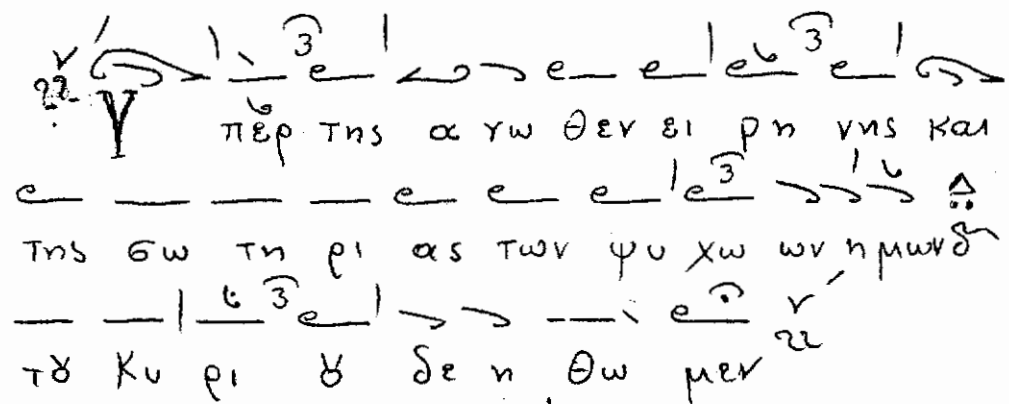 Υ πὲρ της α νω θεν ει ρη νης και
της σω τη ρι ας των ψυ χω ων η μων
τȣ Κυ ρι ȣ δε η θω μεν